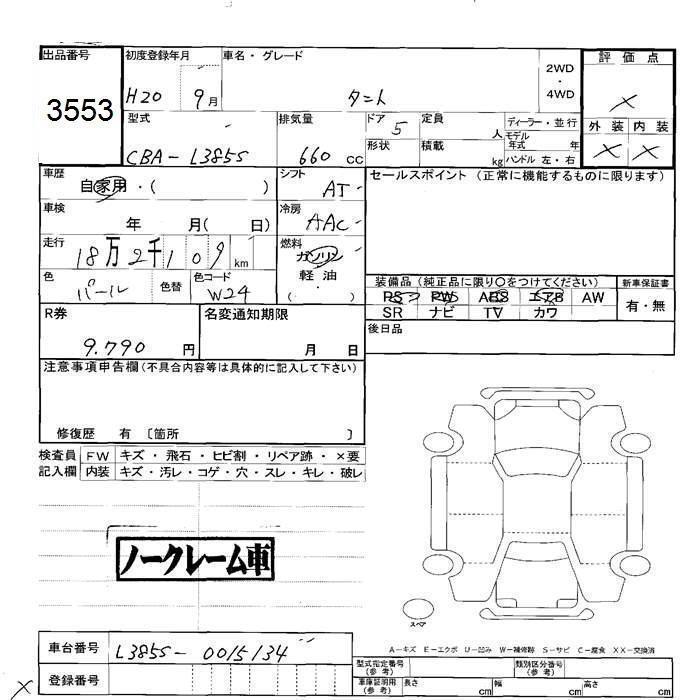 出品番号 初度登録年月 車名・グレード 2WD・4WD 評価点
3553 H20 9月 タント ×
型式 排気量 ドア 5 定員 人 ディーラー・並行 外装 内装
モデル年式 年
CBA-L385S 660 cc 形状 積載 kg ハンドル 左・右 × ×
車歴 自家用・( ) シフト AT セールスポイント (正常に機能するものに限ります)
車検 年 月( 日) 冷房 AAC
走行 18万2千109km 燃料 ガソリン 軽油 ( )
色 パール 色替 色コード W24 装備品 (純正品に限り○をつけてください) 新車保証書
PS PW ABS エアB AW 有・無
SR ナビ TV カワ
R券 名変通知期限 後日品
9.790 円 月 日
注意事項申告欄 (不具合内容等は具体的に記入して下さい)
修復歴 有 〔箇所 〕
検査員 FW キズ・飛石・ヒビ割・リペア跡・×要
記入欄 内装 キズ・汚レ・コゲ・穴・スレ・キレ・破レ
ノークレーム車
スペア
A－キズ E－エクボ U－凹み W－補修跡 S－サビ C－腐食 XX－交換済
車台番号 L385S-0015134
型式指定番号(参考) 類別区分番号(参考)
登録番号 車庫証明用(参考) 長さ cm 幅 cm 高さ cm
×